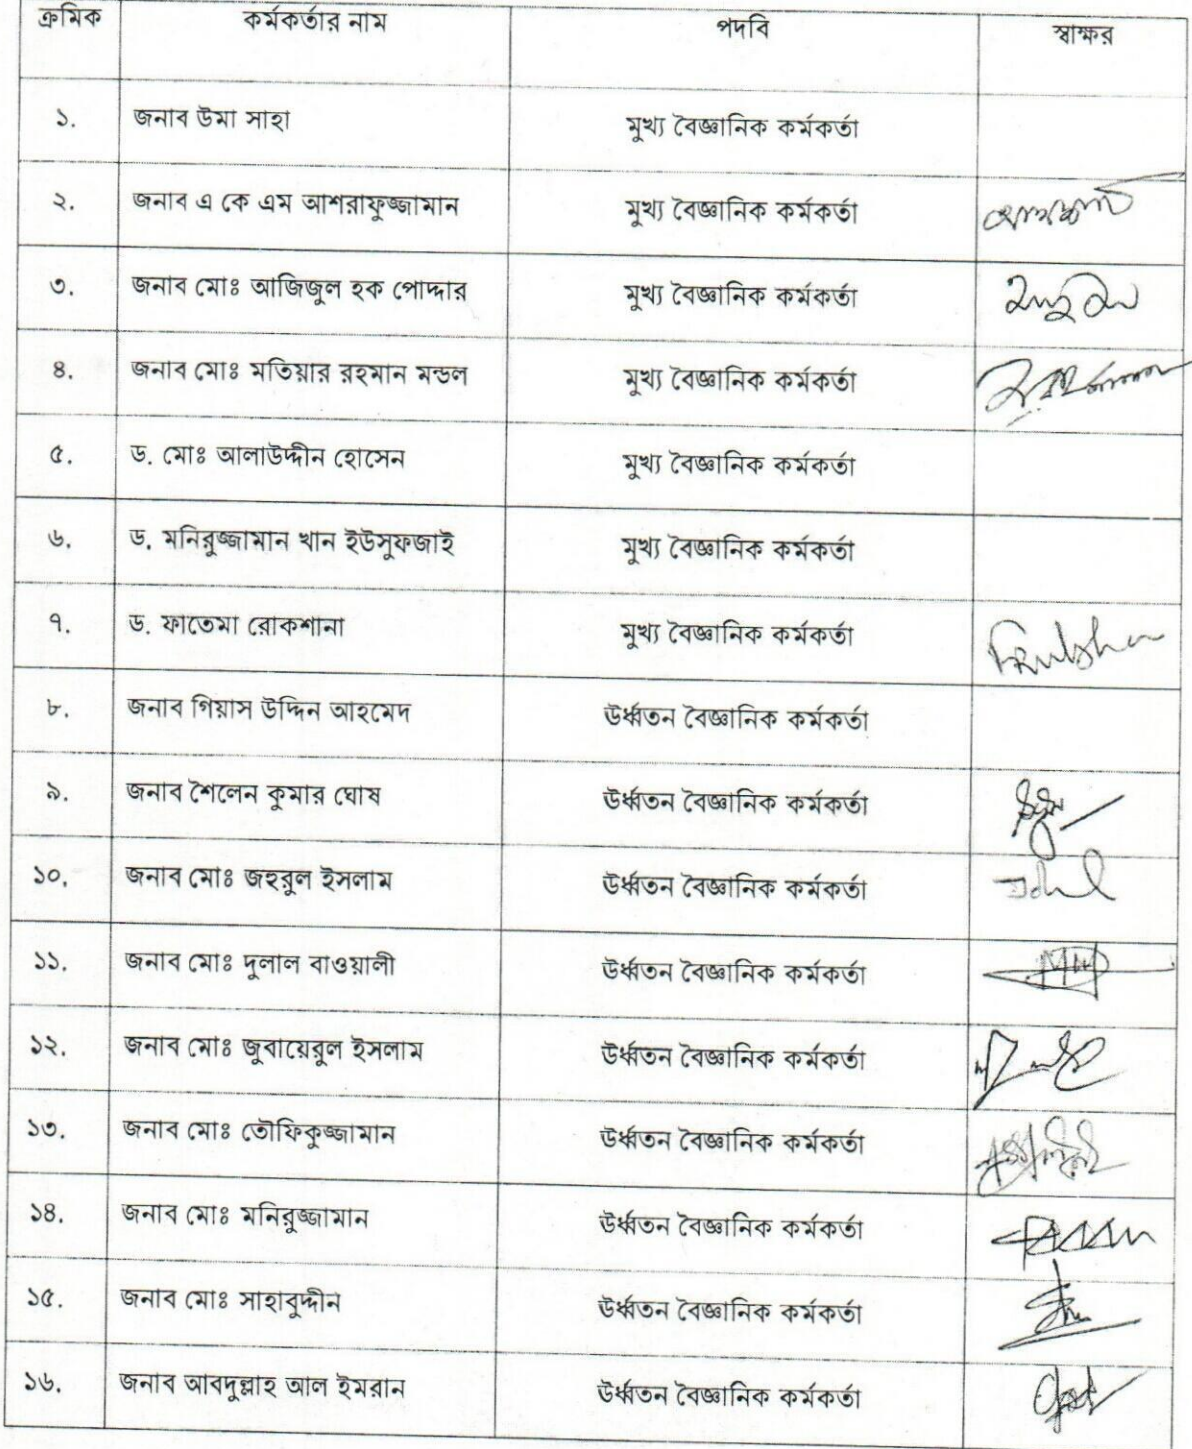 ক্রমিক কর্মকর্তার নাম পদবি স্বাক্ষর
১. জনাব উমা সাহা মুখ্য বৈজ্ঞানিক কর্মকর্তা
২. জনাব এ কে এম আশরাফুজ্জামান মুখ্য বৈজ্ঞানিক কর্মকর্তা
৩. জনাব মোঃ আজিজুল হক পোদ্দার মুখ্য বৈজ্ঞানিক কর্মকর্তা
৪. জনাব মোঃ মতিয়ার রহমান মন্ডল মুখ্য বৈজ্ঞানিক কর্মকর্তা
৫. ড. মোঃ আলাউদ্দীন হোসেন মুখ্য বৈজ্ঞানিক কর্মকর্তা
৬. ড. মনিরুজ্জামান খান ইউসুফজাই মুখ্য বৈজ্ঞানিক কর্মকর্তা
৭. ড. ফাতেমা রোকশানা মুখ্য বৈজ্ঞানিক কর্মকর্তা
৮. জনাব গিয়াস উদ্দিন আহমেদ উর্ধ্বতন বৈজ্ঞানিক কর্মকর্তা
৯. জনাব শৈলেন কুমার ঘোষ উর্ধ্বতন বৈজ্ঞানিক কর্মকর্তা
১০. জনাব মোঃ জহুরুল ইসলাম উর্ধ্বতন বৈজ্ঞানিক কর্মকর্তা
১১. জনাব মোঃ দুলাল বাওয়ালী উর্ধ্বতন বৈজ্ঞানিক কর্মকর্তা
১২. জনাব মোঃ জুবায়েরুল ইসলাম উর্ধ্বতন বৈজ্ঞানিক কর্মকর্তা
১৩. জনাব মোঃ তৌফিকুজ্জামান উর্ধ্বতন বৈজ্ঞানিক কর্মকর্তা
১৪. জনাব মোঃ মনিরুজ্জামান উর্ধ্বতন বৈজ্ঞানিক কর্মকর্তা
১৫. জনাব মোঃ সাহাবুদ্দীন উর্ধ্বতন বৈজ্ঞানিক কর্মকর্তা
১৬. জনাব আবদুল্লাহ আল ইমরান উর্ধ্বতন বৈজ্ঞানিক কর্মকর্তা